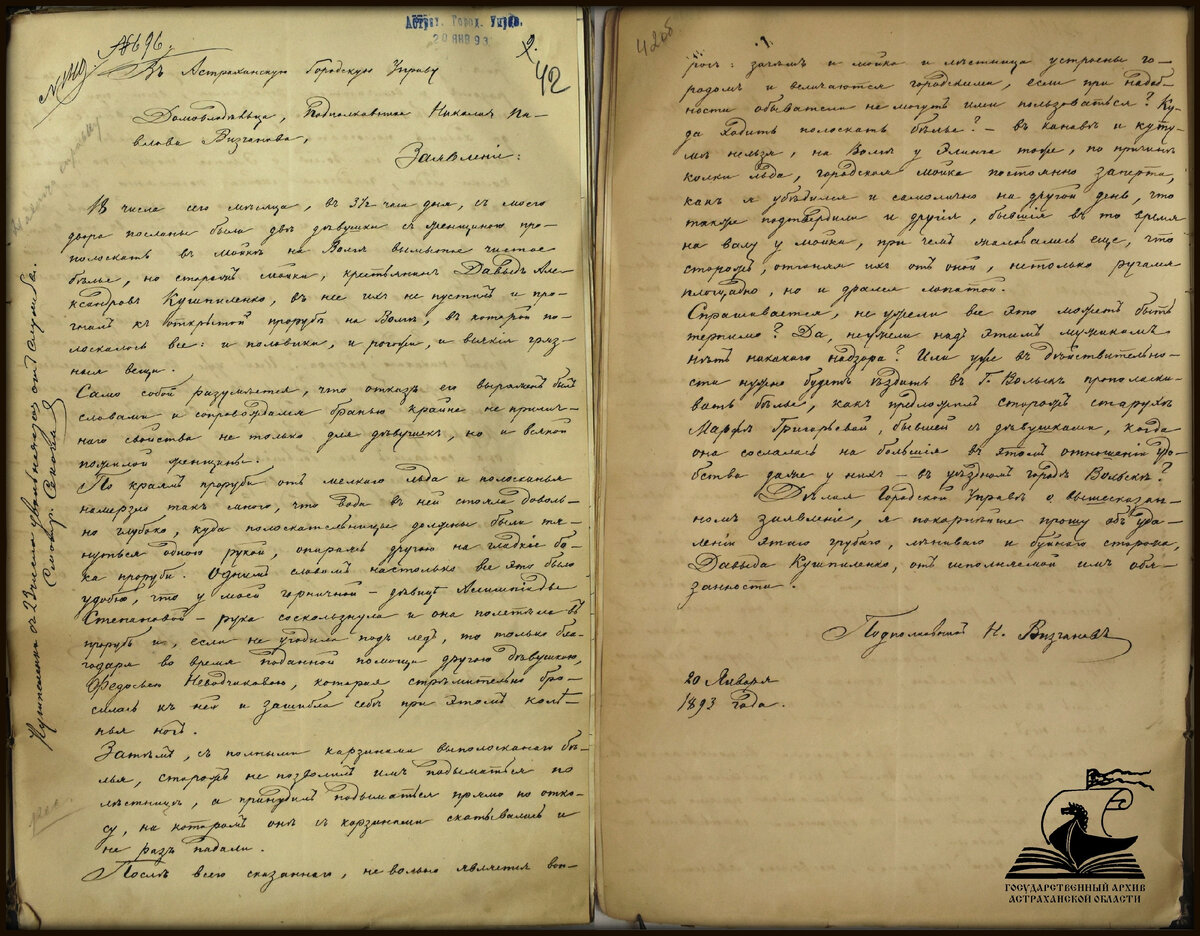 № 696.
Астрах. Город. Управ.
20 ЯНВ 93
42
Въ Астраханскую Городскую Управу
Домовладѣльца, Подполковника Николая Па-
влова Визганова,
Заявленіе:
18 числа сего мѣсяца, въ 3½ часа дня, съ моего
двора посланы были двѣ дѣвушки съ женщиною про-
полоскать въ мойкѣ на Волгѣ вымытое чистое
бѣлье, но сторожъ мойки, крестьянинъ Давыдъ Але-
ксандровъ Кушпиленко, въ нее ихъ не пустилъ и про-
гналъ къ открытой проруби на Волгѣ, въ которой по-
лоскалось все: и половики, и рогожи, и всякія гряз-
ныя вещи.
Само собой разумѣется, что отказъ его выраженъ былъ
словами и сопровождался бранью крайне не прилич-
наго свойства не только для дѣвушекъ, но и всякой
пожилой женщины.
По краямъ проруби отъ мелкаго льда и полосканья
намерзло такъ много, что вода въ ней стояла доволь-
но глубоко, куда полоскательницы должны были тя-
нуться одною рукой, опираясь другою на гладкіе бо-
ка проруби. Однимъ словомъ настолько все это было
удобно, что у моей горничной – дѣвицы
Степановой – рука соскользнула и она полетѣла въ
прорубь и, если не угодила подъ ледъ, то только бла-
годаря во время поданной помощи другою дѣвушкою,
Федосьею Неводчиковою, которая стремительно бро-
силась къ ней и зашибла себѣ при этомъ колѣ-
нья ногъ.
Затѣмъ, съ полными карзинами выполосканаго бѣ-
лья, сторожъ не позволилъ имъ подыматься по
лѣстницѣ, а принудилъ подыматься прямо по отко-
су, на которомъ онѣ съ карзинами скатывались и
не разъ падали.
Послѣ всего сказаннаго, не вольно является воп-
Кушпиленко съ 23 числа уволенъ отъ службы.
Смотр.
42об
росъ: зачѣмъ и мойка и лѣстница устроены го-
родомъ и величаются городскими, если при надоб-
ности обыватели не могутъ ими пользоваться? Ку-
да ходить полоскать бѣлье? – въ канавѣ и куту-
мѣ нельзя, на Волгѣ у Эллинга тоже, по причинѣ
колки льда, городская мойка постоянно заперта,
какъ я убѣдился и самолично на другой день, что
также подтвердили и другія, бывшія въ то время
на валу у мойки, при чемъ жаловались еще, что
сторожъ, отгоняя ихъ отъ оной, не только ругался
площадно, но и дрался лопатой.
Спрашивается, не ужели все это можетъ быть
терпимо? Да, неужели надъ этимъ мужикомъ
нѣтъ никакаго надзора? Или уже въ дѣйствительно-
сти нужно будетъ ѣздить въ Г. Вольскъ прополаски-
вать бѣлье, какъ предложилъ сторожъ старухѣ
Марфѣ Григорьевой, бывшей съ дѣвушками, когда
она сослалась на большія въ этомъ отношеніи удо-
бства даже у нихъ – въ уѣздномъ городѣ Вольскѣ?
Дѣлая Городской Управѣ о вышесказан-
номъ заявленіе, я покорнѣйше прошу объ уда-
леніи этаго грубаго, лѣниваго и буйнаго сторожа,
Давыда Кушпиленко, отъ исполняемой имъ обя-
занности
Подполковникъ Н. Визгановъ
20 Января
1893 года.
ГОСУДАРСТВЕННЫЙ АРХИВ
АСТРАХАНСКОЙ ОБЛАСТИ